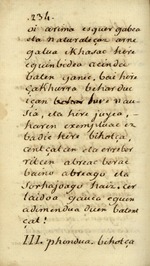 234.
oi arima esquer gabea
eta naturaleçan arne
galua khasac here
eguinbidea acinda
baten ganic, bai hire
gakhurra behardur
içan hire nau
sia, eta hire joyea,
haren exemplua
badic hire bihotça,
ant çalçan eta
ritcen abreac borac
baino abreago eta
sorhajoago haiz. cer
laidoa gauça eguin
adimendua duen batent
çat!
III. phondua. bihotça